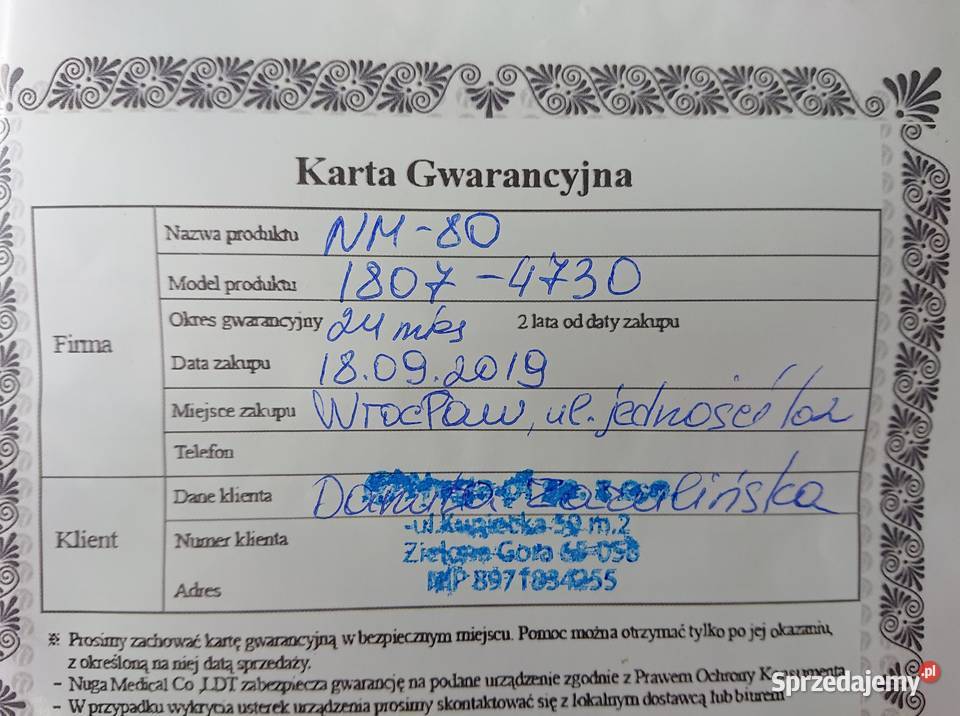 Karta Gwarancyjna
Firma
Nazwa produktu NM-80
Model produktu 1807-4730
Okres gwarancyjny 24 mies 2 lata od daty zakupu
Data zakupu 18.09.2019
Miejsce zakupu Wrocław, ul. jedności
Telefon
Klient
Dane klienta Danuta
Numer klienta
ul. 59 m.2
Zielona Gora
Adres
NIP
※ Prosimy zachować kartę gwarancyjną w bezpiecznym miejscu. Pomoc można otrzymać tylko po jej okazaniu,
z określoną na niej datą sprzedaży.
- Nuga Medical Co ,LDT zabezpiecza gwarancję na podane urządzenie zgodnie z Prawem Ochrony Konsumenta
- W przypadku wykrycia usterek urządzenia prosimy skontaktować się z lokalnym dostawcą lub biurem
Sprzedajemy.pl